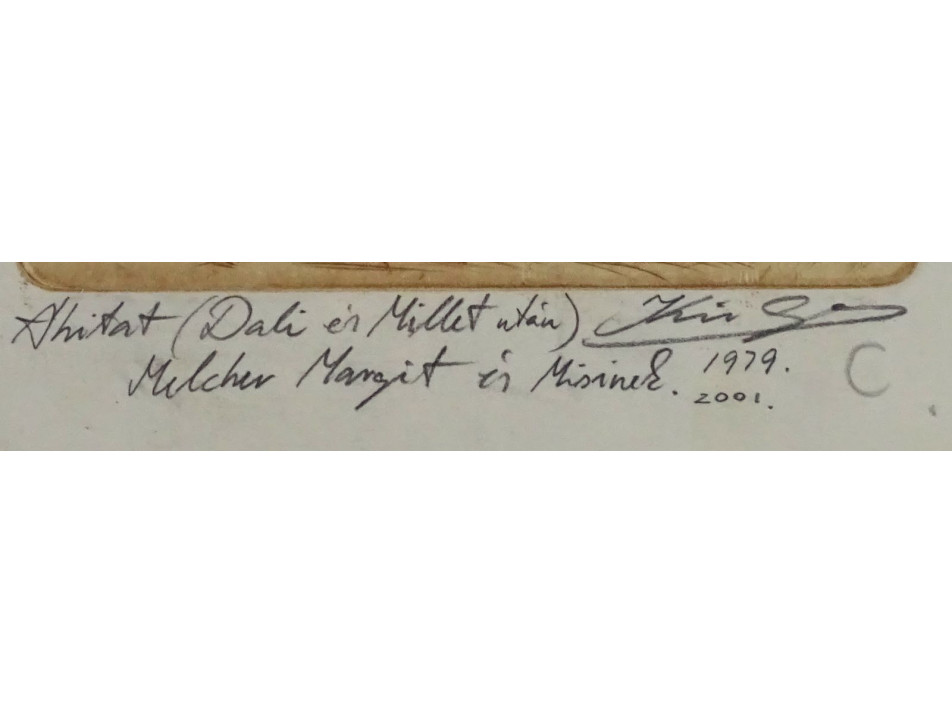 Áhitat (Dali és Millet után)
Melcher Margit és Misinek. 1979.
2001.
C